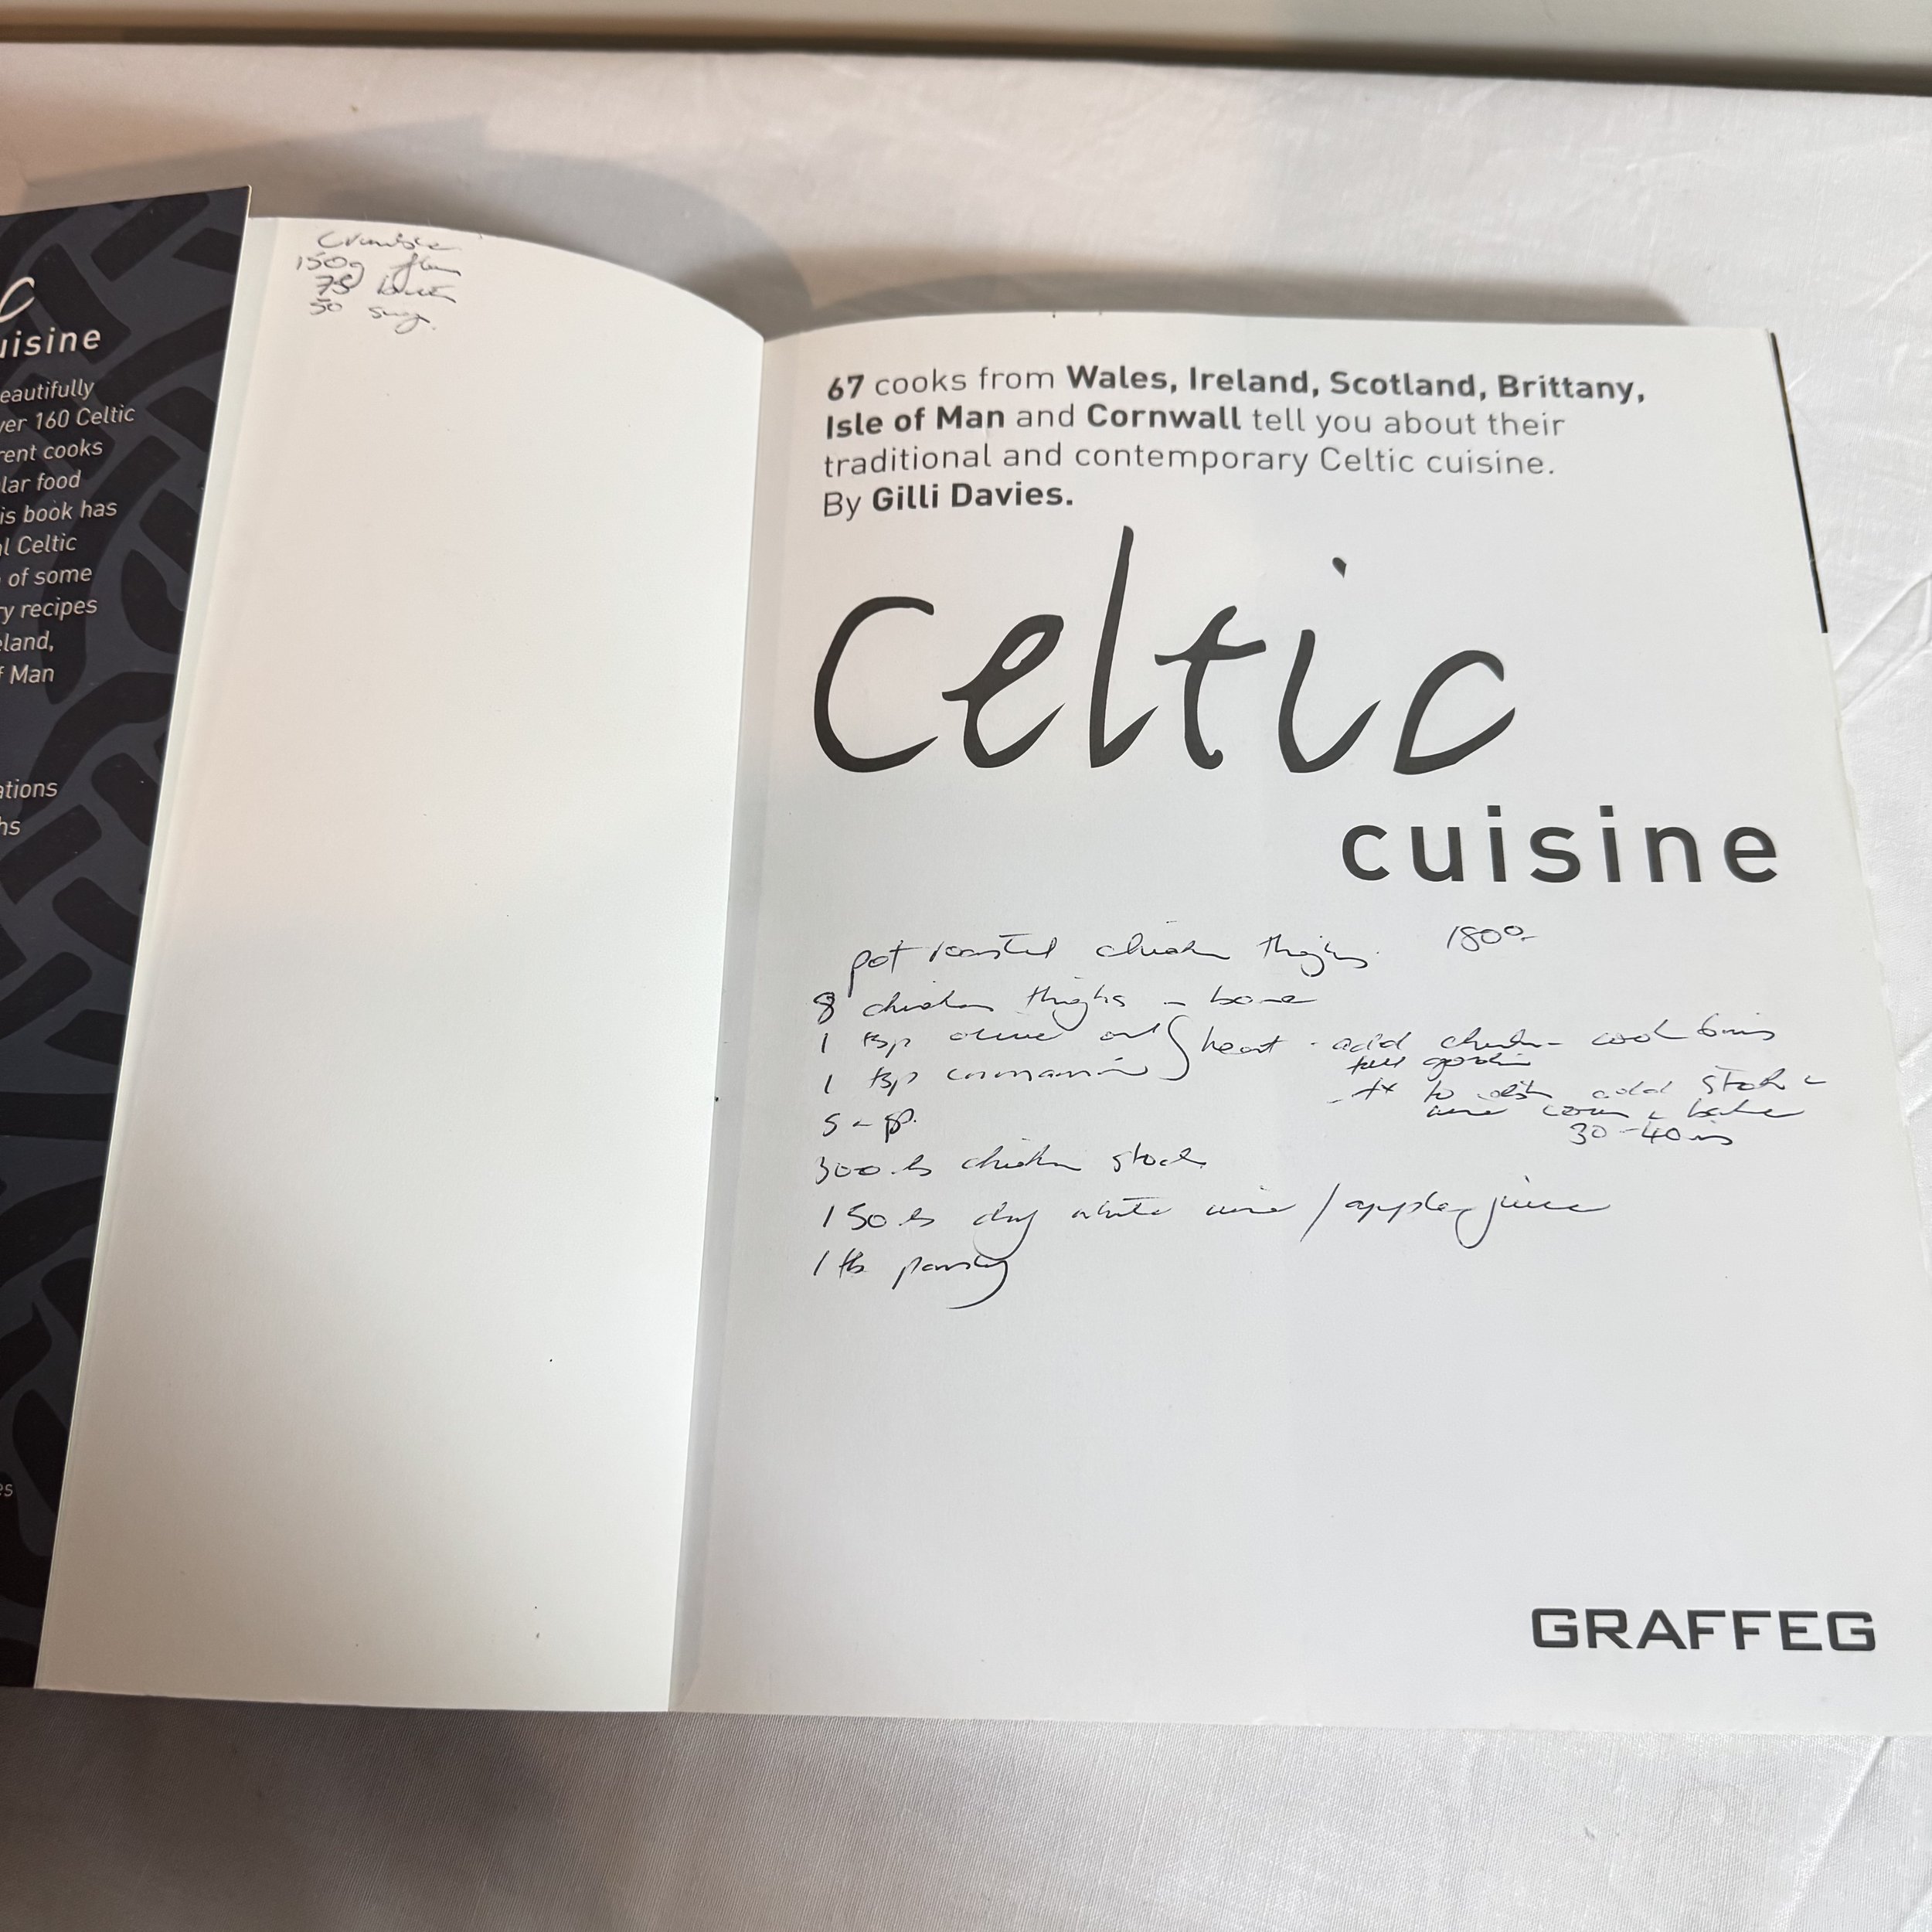 c
uisine
eautifully
ver 160 Celtic
rent cooks
lar food
is book has
al Celtic
of some
ry recipes
eland,
f Man
ations
hs
es
Crumble
150g flour
75 butter
50 sugar
67 cooks from Wales, Ireland, Scotland, Brittany,
Isle of Man and Cornwall tell you about their
traditional and contemporary Celtic cuisine.
By Gilli Davies.
Celtic
cuisine
pot roasted chicken thighs. 180°
8 chicken thighs - bone
1 tsp olive oil } heat - add chicken - cook 6 mins
1 tsp cinnamon till golden
- tx to dish add stock &
s - p. wine cover & bake
30-40 m
300 mls chicken stock
150 mls dry white wine / apple juice
1 tb parsley
GRAFFEG